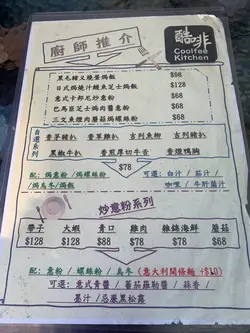 廚師推介
酷啡
Coolfee
Kitchen
黑毛豬叉燒薑焗飯 $98
日式焗燒汁鰻魚芝士焗飯 $128
意式卡邦尼炒意粉 $88
巴馬臣芝士焗肉醬意粉 $88
三文魚煙肉蘑菇焗螺絲粉 $88
自選系列
香茅豬扒 香茅雞扒 吉列魚柳 吉列豬扒
黑椒牛扒 香煎厚切牛舌 香燻鴨胸
$78
配: 焗意粉 / 焗螺絲粉 可選: 白汁 / 茄汁 /
/ 焗烏冬/焗飯 咖喱 / 牛肝菌汁
炒意粉系列
帶子 大蝦 青口 雞肉 雜錦海鮮 蘑菇
$128 $128 $88 $78 $78 $68
配: 意粉 / 螺絲粉 / 烏冬 (意大利闊條麵 +$10)
可選: 意式青醬 / 蕃茄羅勒醬 / 蒜香 /
墨汁 /忌廉黑松露